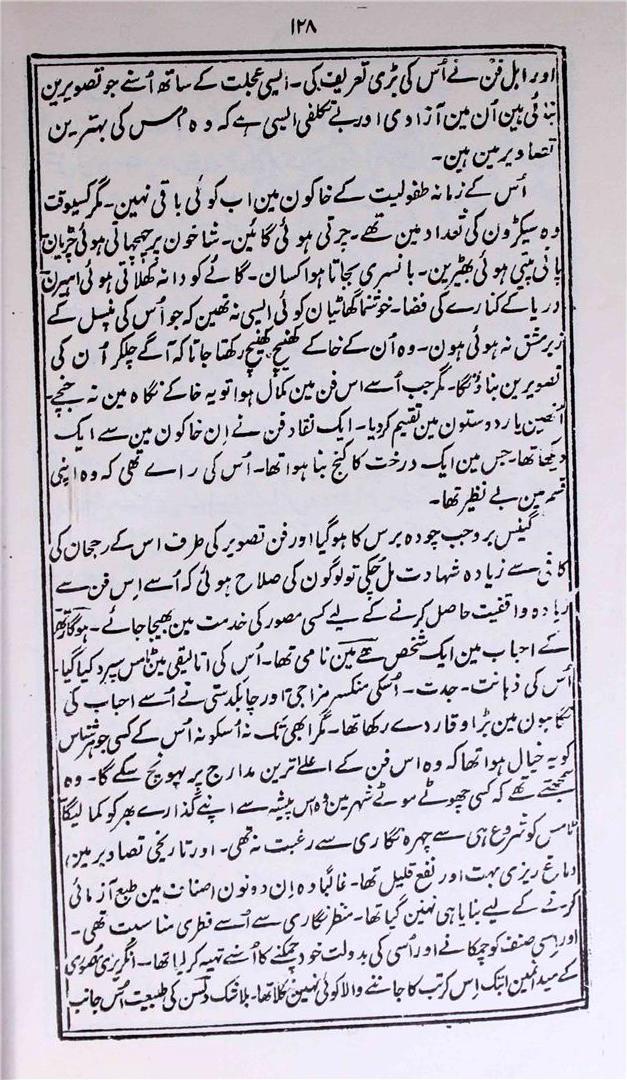 ۱۲۸
اور اہل فن نے اُس کی بڑی تعریف کی۔ ایسی عجلت کے ساتھ اُسنے جو تصویرین
بنائی ہین اُن مین آزادی اور بے تکلفی ایسی ہے کہ وہ اُس کی بہترین
تصاویر مین ہین۔
اُس کے زمانہ طفولیت کے خاکون مین اب کوئی باقی نہین۔ مگر کسیوقت
وہ سیکڑون کی تعداد مین تھے۔ چرتی ہوئی گائین۔ شاخون پر چہچہاتی ہوئی چڑیان
پانی پیتی ہوئی بھیڑین۔ بانسری بجاتا ہوا کسان۔ گائے کو دانہ کھلاتی ہوئی اہیرن
دریا کے کنارے کی فضا۔ خوشنما گھاٹیان کوئی ایسی نہ تھین کہ جو اُس کی پنسل کے
زیر مشق نہ ہوئی ہون۔ وہ اُن کے خاکے کھینچ کھینچ رکھتا جاتا کہ آگے چلکر اُن کی
تصویرین بناؤنگا۔ مگر جب اُسے اس فن مین کمال ہوا تو یہ خاکے نگاہ مین نہ جچے۔
اُنھین یار دوستون مین تقسیم کر دیا۔ ایک نقاد فن نے اِن خاکون مین سے ایک
دیکھا تھا۔ جس مین ایک درخت کا کنج بنا ہوا تھا۔ اُس کی راے تھی کہ وہ اپنی
قسم مین بے نظیر تھا۔
گینس برو جب چودہ برس کا ہوگیا اور فن تصویر کی طرف اس کے رجحان کی
کافی سے زیادہ شہادت مل چکی تو لوگون کی صلاح ہوئی کہ اُسے اِس فن سے
زیادہ واقفیت حاصل کرنے کے لیے کسی مصور کی خدمت مین بھیجا جائے۔ ہوگارتھ
کے احباب مین ایک شخص ہے مین نامی تھا۔ اُس کی اتالیقی مین ٹامس سپرد کیا گیا۔
اُس کی ذہانت۔ جدت۔ اُسکی منکسر مزاجی اور چابکدستی نے اُسے احباب کی
نگاہون مین بڑا وقار دے رکھا تھا۔ مگر ابھی تک نہ اُسکو نہ اُس کے کسی جوہر شناس
کو یہ خیال ہوا تھا کہ وہ اس فن کے اعلےٰ ترین مدارج پر پہونچ سکے گا۔ وہ
سمجھتے تھے کہ کسی چھوٹے موٹے شہر مین وہ اس پیشہ سے اپنے گذارے بھر کو کما لیگا
ٹامس کو شروع ہی سے چہرہ نگاری سے رغبت نہ تھی۔ اور تاریخی تصاویر مین
دماغ ریزی بہت اور نفع قلیل تھا۔ غالباً وہ اِن دونون اصناف مین طبع آزمائی
کرنے کے لیے بنایا ہی نہین گیا تھا۔ منظر نگاری سے اُسے فطری مناسبت تھی۔
اور اِسی صنف کو چمکانے اور اُسی کی بدولت خود چمکنے کا اُسنے تہیہ کر لیا تھا۔ انگریزی مصوری
کے میدانمین ابتک اِس کرتب کا جاننے والا کوئی نہین نکلا تھا۔ بلاشک ولسن کی طبیعت اُس جانب